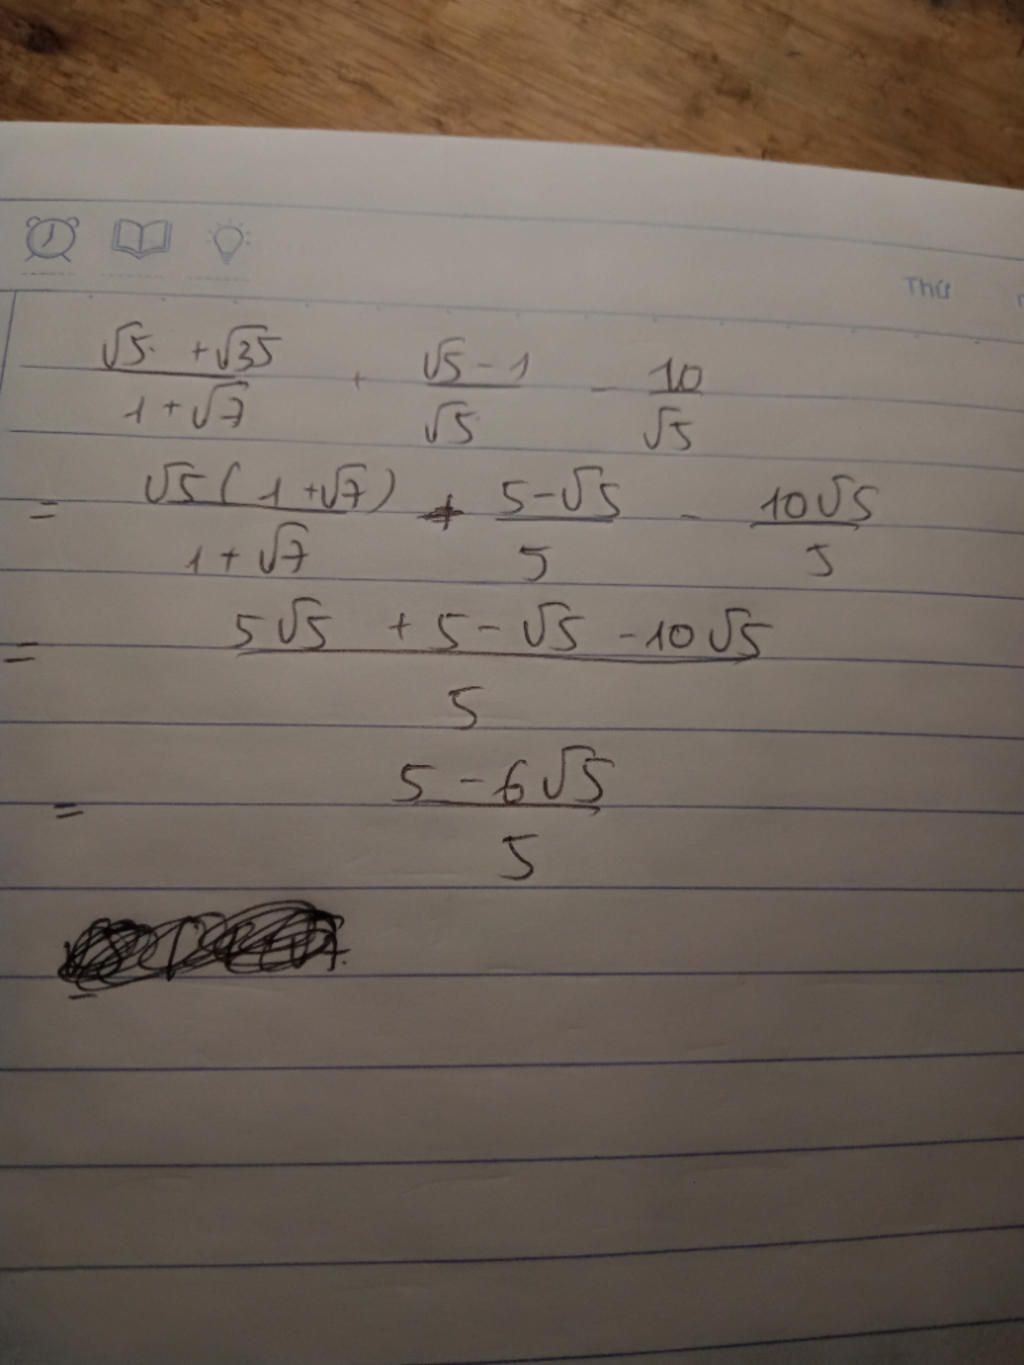 Thứ
(√5 + √35)/(1 + √7) + (√5 - 1)/√5 - 10/√5
= √5(1 + √7)/(1 + √7) + (5 - √5)/5 - 10√5/5
= (5√5 + 5 - √5 - 10√5)/5
= (5 - 6√5)/5
=